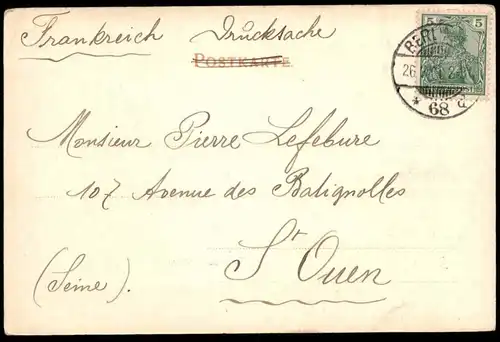 Frankreich Drucksache
POSTKARTE
Monsieur Pierre Lefebure
107 Avenue des Batignolles
St Ouen
(Seine).
5 5
26
* 68 d